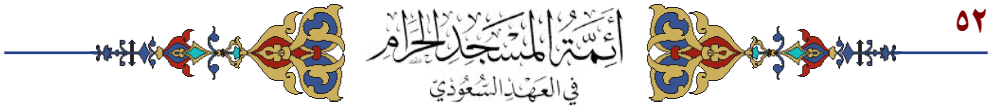 ٥٢
أَئِمَّةُ المَسْجِدِ الحَرَامِ
في العَهْدِ السُّعُودِيّ